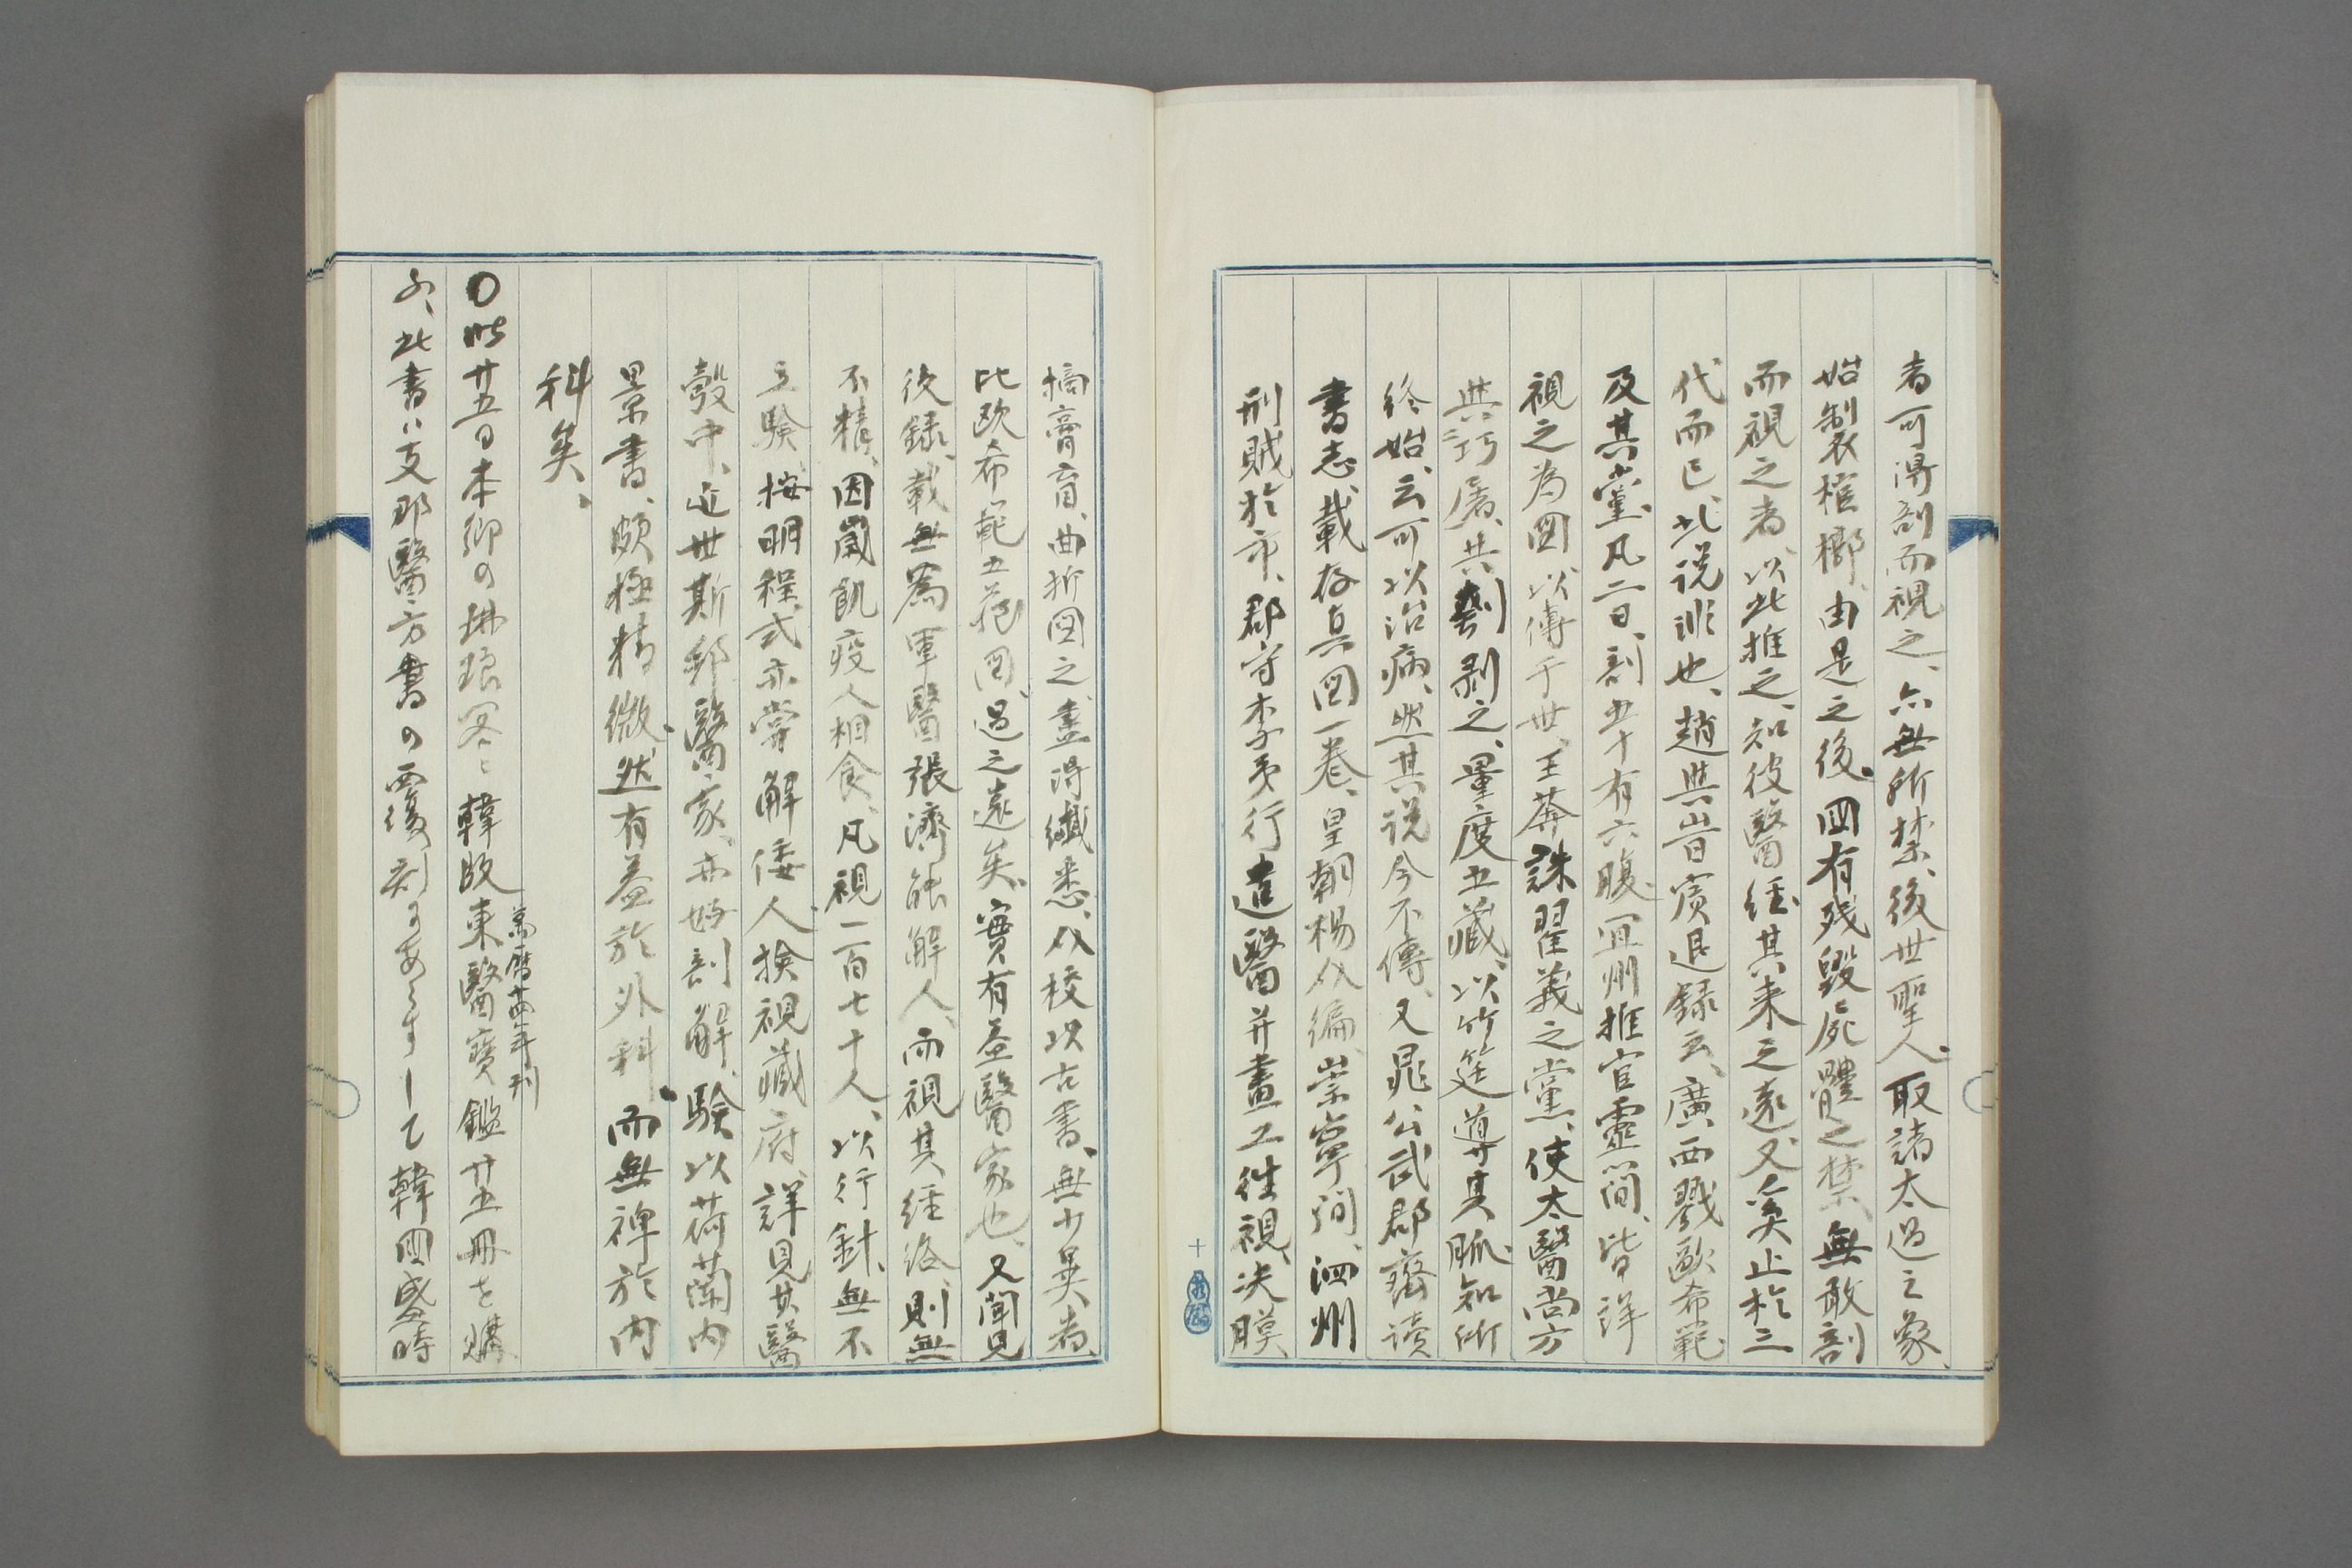 者可得剖而視之、亦無所禁、後世聖人、取諸太過之象、
始製棺槨、由是之後、国有残毀屍體之禁、無敢剖
而視之者、以此推之、知彼醫経其来之遠、又奚止於三
代而已、此説非也、趙與旹賓退録云、廣西戮歐希範、
及其黨、凡二日、剖五十有六腹、宜州推官靈簡、皆詳
視之為図、以傳于世、王莽誅翟義之黨、使太醫尚方
與巧屠、共刳剥之、量度五藏、以竹筳導其脈、知所
終始、云可以治病、然其説今不傳、又晁公武郡齋讀
書志、載存真図一巻、皇朝楊介編、崇寧間、泗州
刑賊於市、郡守李夷行遣醫并畫工往視、决膜
摘膏肓、曲折図之、盡得纖悉、介校以古書、無少異者、
比欧希範五蔵図、過之遠矣、實有益醫家也、又聞見
後録、載無為軍醫張濟能解人、而視其経絡、則無
不精、因歳飢疫人相食、凡視一百七十人、以行針、無不
立驗、按明程式亦嘗解倭人、檢視藏府、詳見其醫
彀中、近世斯邦醫家、亦好剖解、驗以荷蘭内
景書、頗極精微、然有益於外科、而無裨於内
科矣、
〇昨廿五日本郷の琳琅閣に韓版東醫寶鑑廿五冊を購
萬暦四十一年刊
ふ、此書ハ支那醫方書の覆刻にあらすして韓国盛時
十